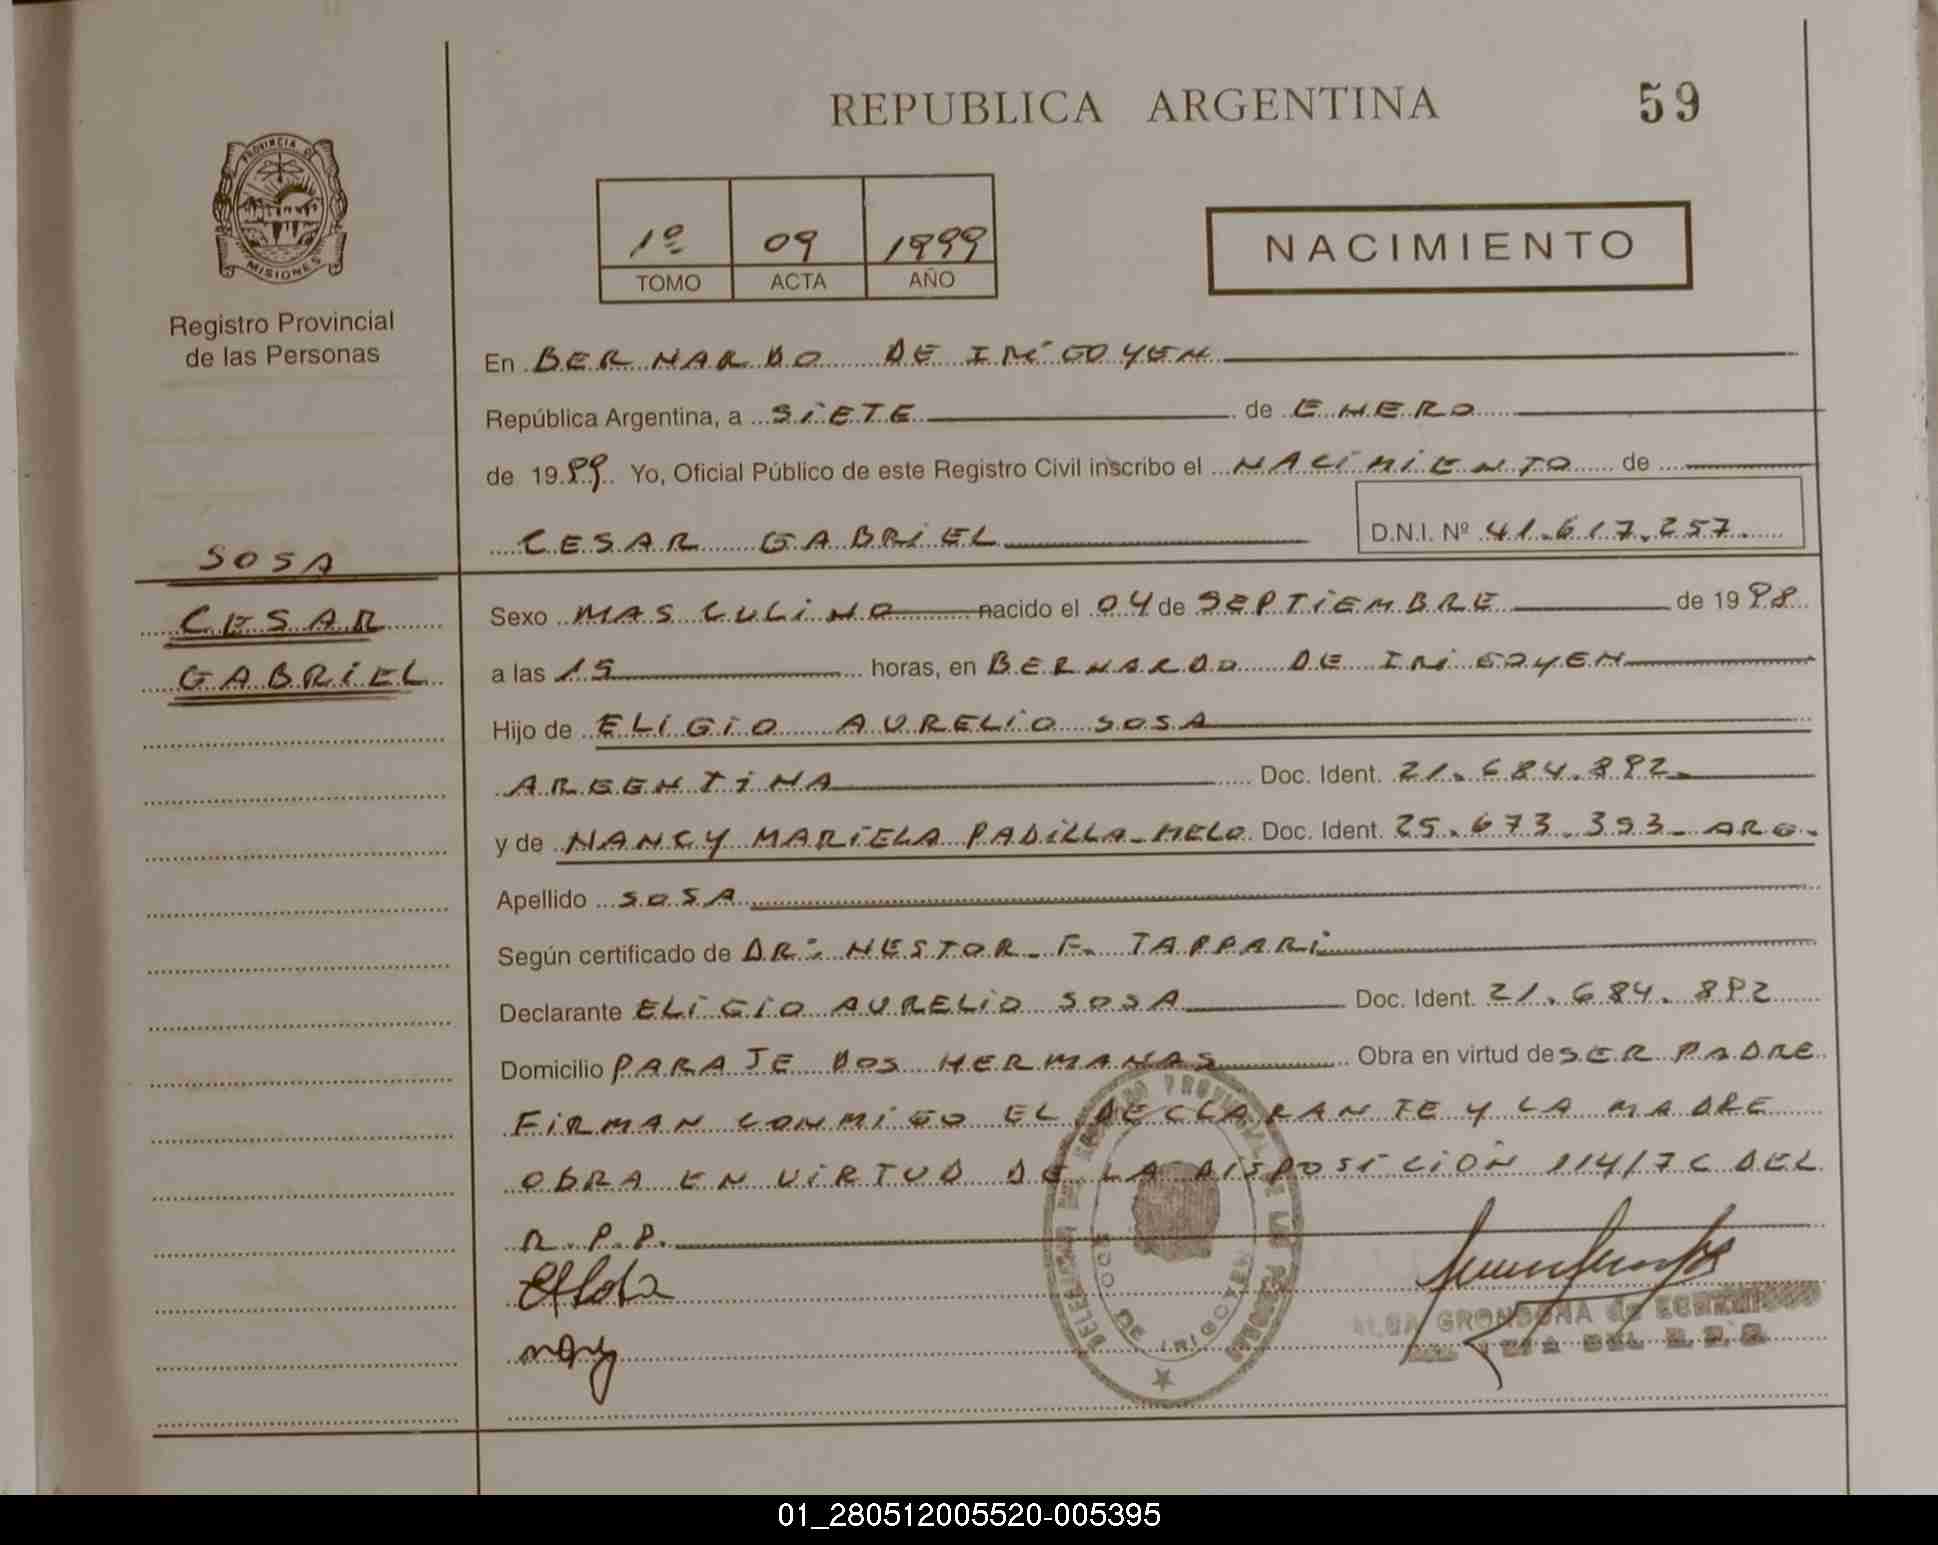 REPUBLICA ARGENTINA
59
PROVINCIA DE
MISIONES
Registro Provincial
de las Personas
1º 09 1999
TOMO ACTA AÑO
NACIMIENTO
En BERNARDO DE IRIGOYEN
República Argentina, a SIETE de ENERO
de 1999. Yo, Oficial Público de este Registro Civil inscribo el NACIMIENTO de
CESAR GABRIEL
D.N.I. Nº 41.617.257.
SOSA
CESAR
GABRIEL
Sexo MASCULINO nacido el 04 de SEPTIEMBRE de 1998
a las 15 horas, en BERNARDO DE IRIGOYEN
Hijo de ELIGIO AURELIO SOSA
ARGENTINA Doc. Ident. 21.684.892.
y de NANCY MARIELA PADILLA-MELO Doc. Ident. 25.673.393- ARG.
Apellido SOSA
Según certificado de DR: NESTOR F. TAPPARI
Declarante ELIGIO AURELIO SOSA Doc. Ident. 21.684.892
Domicilio PARAJE DOS HERMANAS Obra en virtud de SER PADRE
FIRMAN CONMIGO EL DECLARANTE Y LA MADRE
OBRA EN VIRTUD DE LA DISPOSICIÓN 114/7C DEL
R.P.P.
DELEGACION DEL REGISTRO PROVINCIAL DE LAS PERSONAS
DE IRIGOYEN
GRONDONA de
DEL R.P.P.
01_280512005520-005395